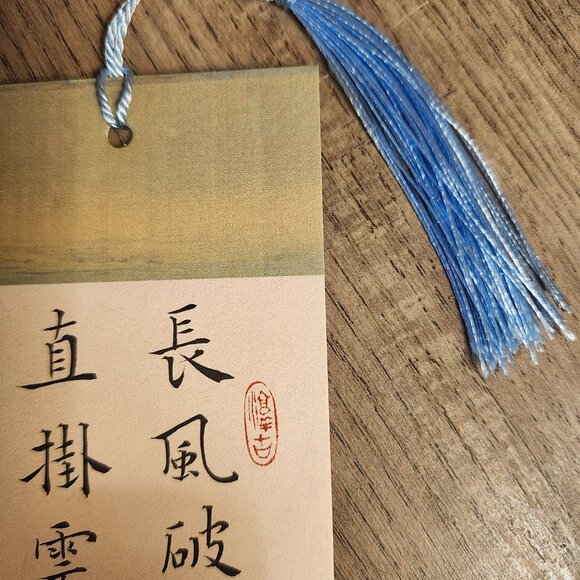 長風破
直掛雲